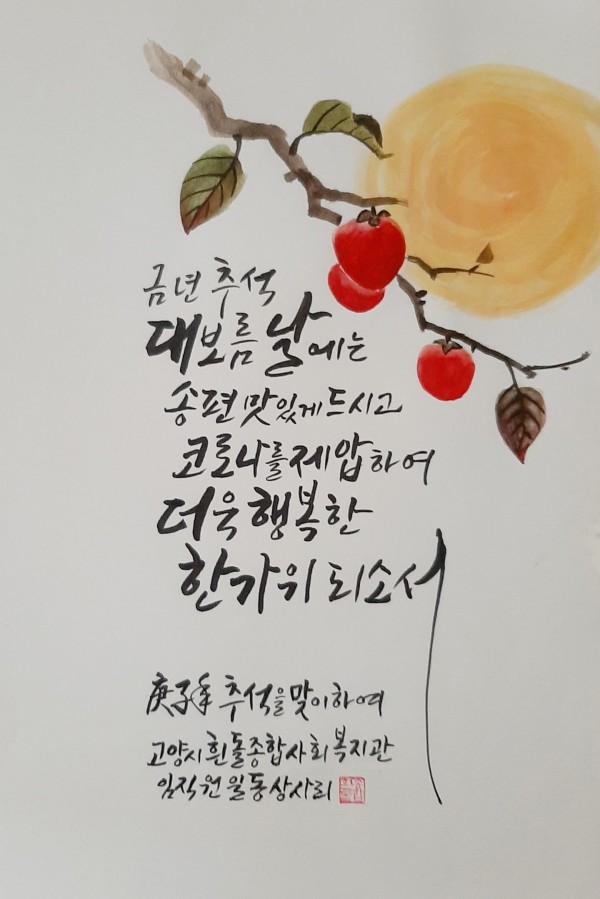 금년 추석
대보름 날에는
송편 맛있게 드시고
코로나를 제압하여
더욱 행복한
한가위 되소서
庚子年 추석을 맞이하여
고양시 흰돌종합사회복지관
임직원 일동 상사리